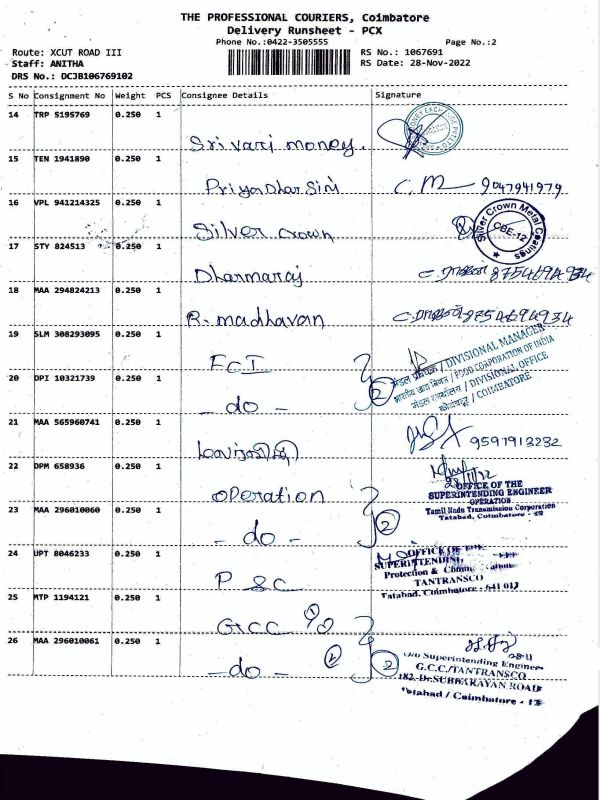 THE PROFESSIONAL COURIERS, Coimbatore
Delivery Runsheet - PCX
Phone No.:0422-3505555 Page No.:2
Route: XCUT ROAD III RS No.: 1067691
Staff: ANITHA RS Date: 28-Nov-2022
DRS No.: DCJB106769102
S No Consignment No Weight PCS Consignee Details Signature
14 TRP 5195769 0.250 1
Srivari money.
15 TEN 1941890 0.250 1
PriyaDharsini C.M 9047941979
16 VPL 941214325 0.250 1
Silver crown
Silver Crown Metal Coatings
CBE-12
17 STY 824513 0.250 1
Dharmaraj 8754694934
18 MAA 294824213 0.250 1
R. madhavan 8754694934
19 SLM 308293095 0.250 1
FCI
मंडल प्रबंधक / DIVISIONAL MANAGER
भारतीय खाद्य निगम / FOOD CORPORATION OF INDIA
मंडल कार्यालय / DIVISIONAL OFFICE
कोयंबतूर / COIMBATORE
20 DPI 10321739 0.250 1
- do - 2
21 MAA 565960741 0.250 1
9597913232
22 DPM 658936 0.250 1
operation
OFFICE OF THE
SUPERINTENDING ENGINEER
OPERATION
Tamil Nadu Transmission Corporation
Tatabad, Coimbatore - 12
23 MAA 296010060 0.250 1
- do - 2
24 UPT 8046233 0.250 1
P &C
OFFICE OF
SUPERINTENDING
Protection &
TANTRANSCO
Tatabad, Coimbatore - 641 012
25 MTP 1194121 0.250 1
GCC 1
26 MAA 296010061 0.250 1
- do - 2 2
O/o Superintending Engineer
G.C.C./TANTRANSCO
182, Dr.SUBBARAYAN ROAD
Tatabad / Coimbatore - 12